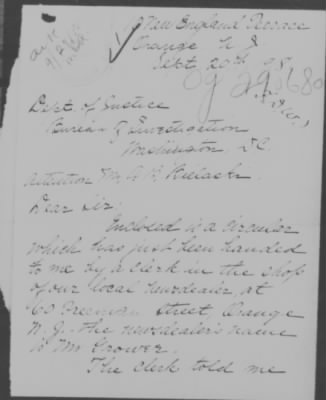 New England Terrace
Orange N J
Sept 20th
Dept. of Justice
Bureau of Investigation
Washington, D.C.
Attention Mr. Bielaski.
Dear Sir:
Enclosed is a circular
which has just been handed
to me by a clerk in the shop
of our local newsdealer at
60 Freeman Street, Orange
N.J. The newsdealer's name
is Mr Grower.
The clerk told me